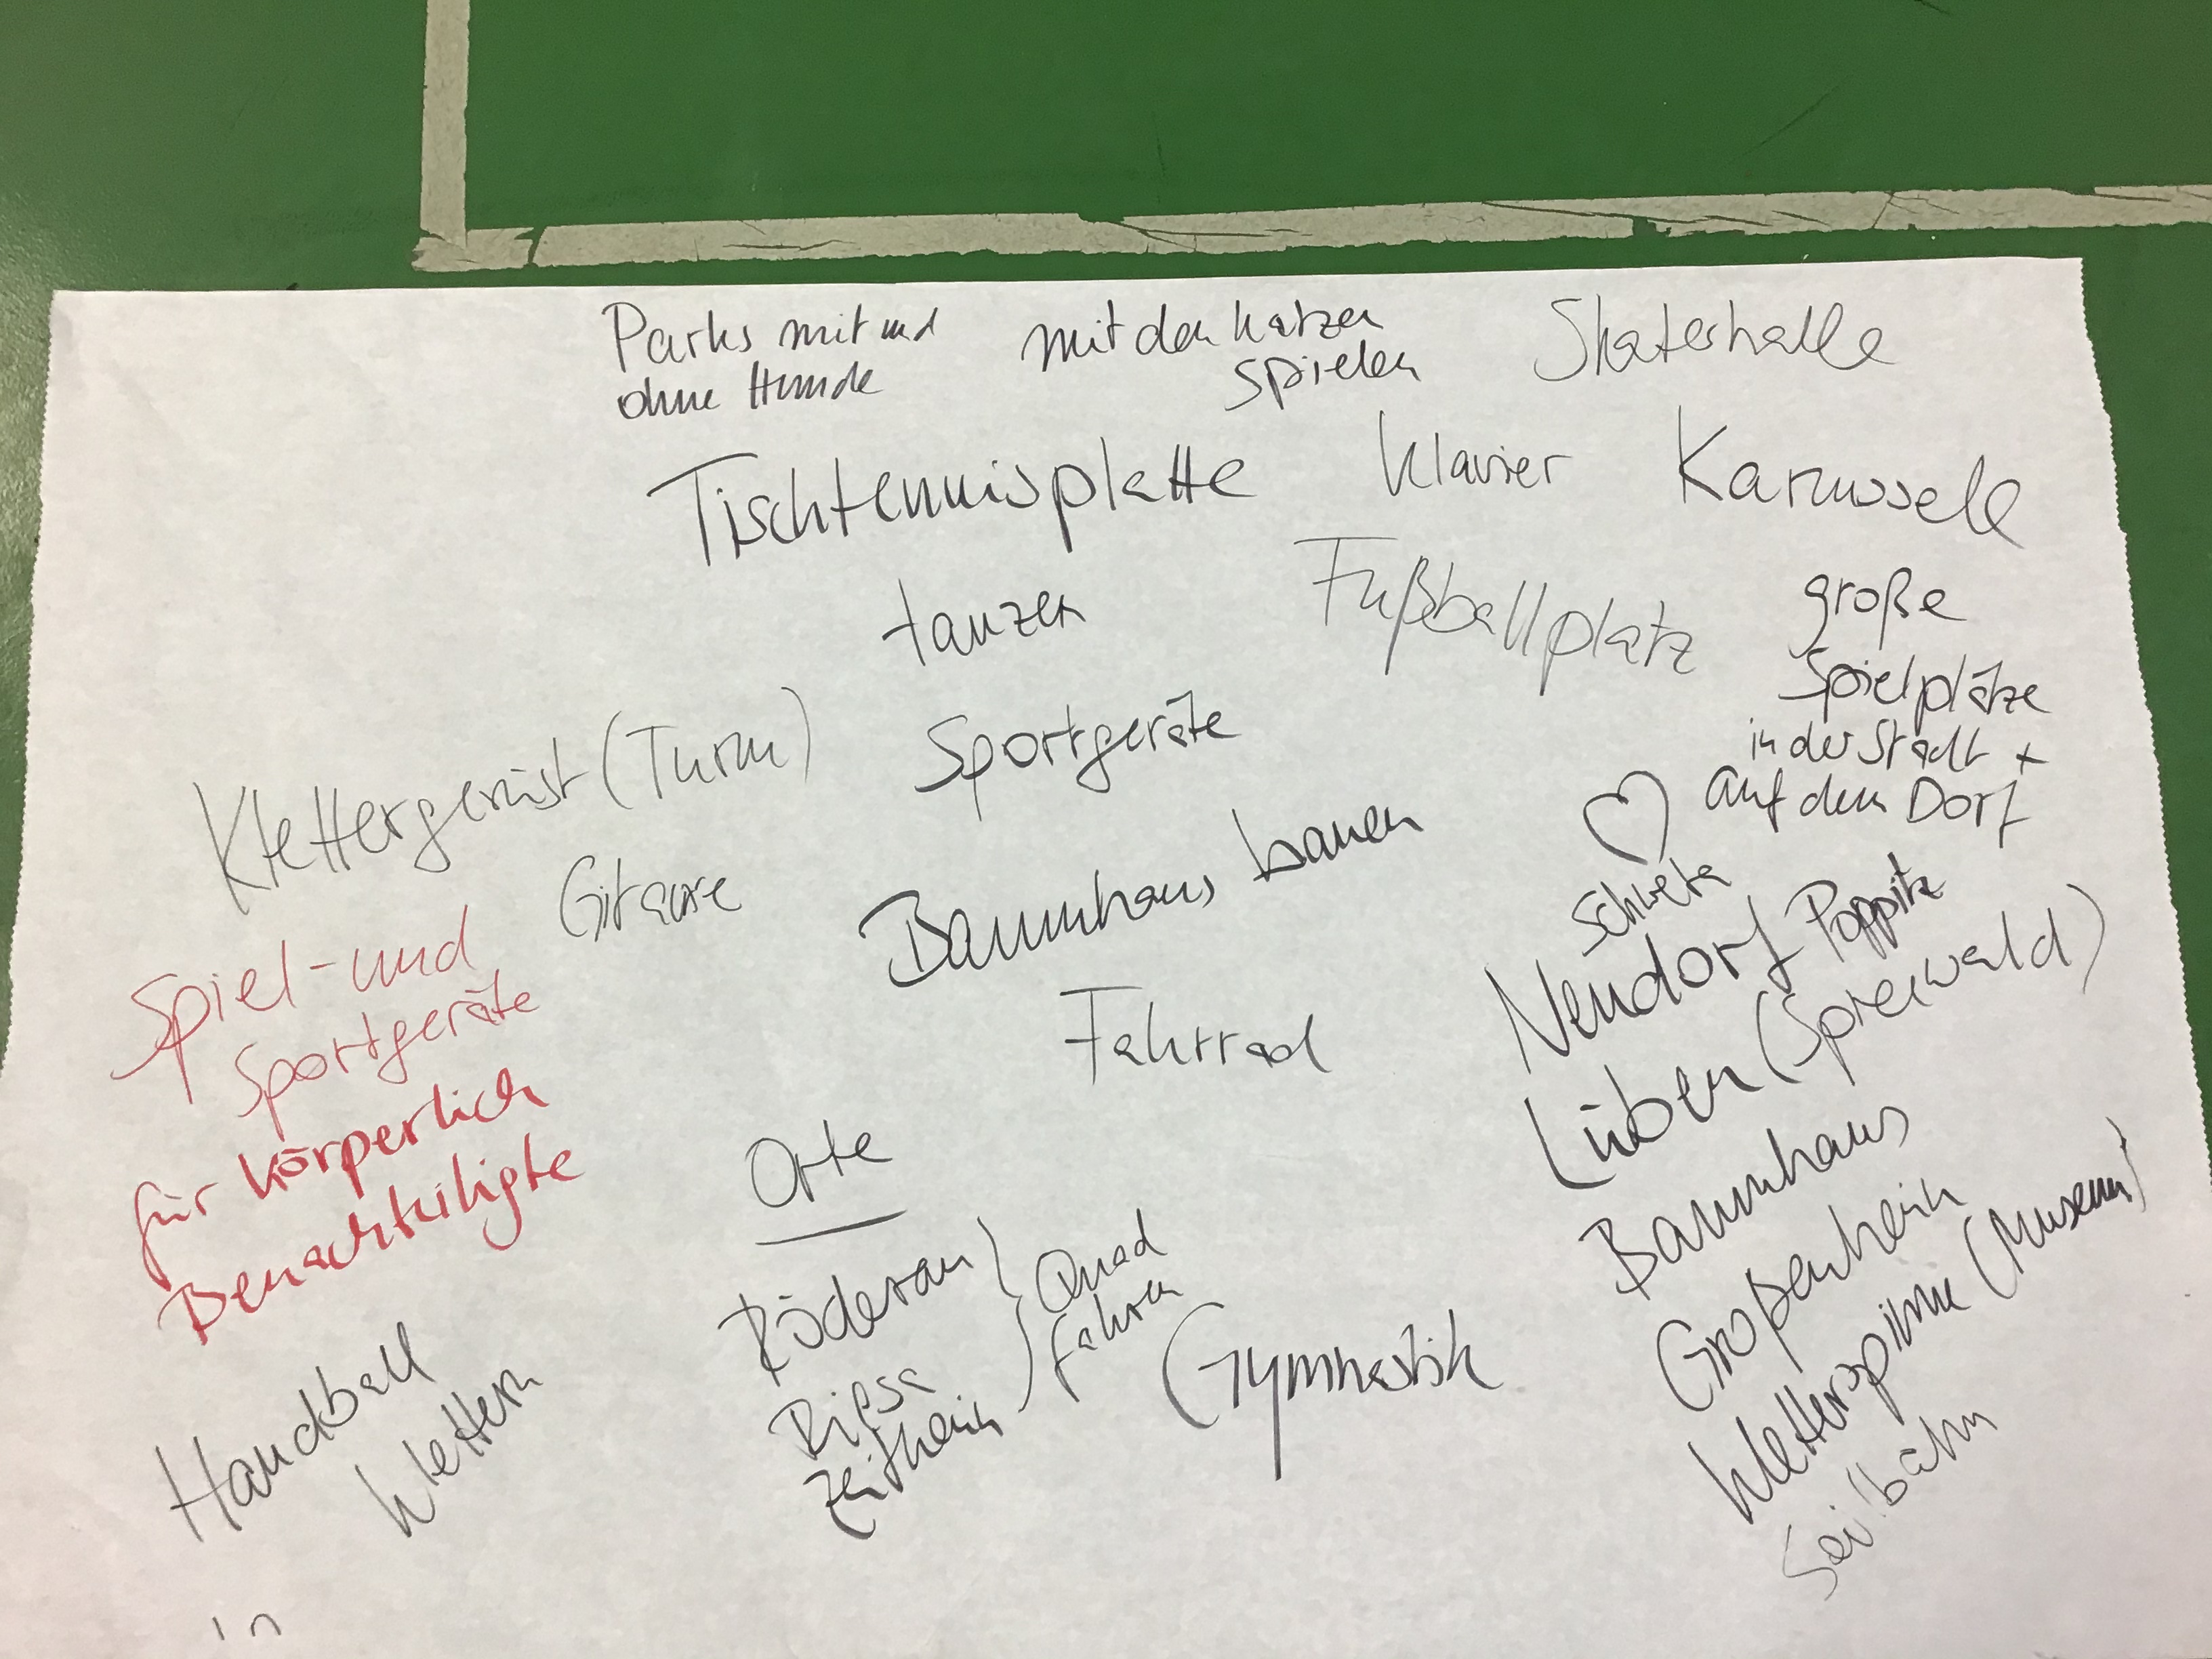 Parks mit und
ohne Hunde
mit den Katzen
spielen
Skaterhalle
Tischtennisplatte
Klavier
Karussell
tanzen
Fußballplatz
große
Spielplätze
in der Stadt +
auf dem Dorf
Klettergerüst (Turm)
Sportgeräte
Gitarre
Baumhaus bauen
♡
Schweta
Neudorf Poppitz
Lüben (Spreewald)
Baumhaus
Großenhein
Kletterspinne (Museum)
Seilbahn
Spiel- und
Sportgeräte
für körperlich
Benachteiligte
Fahrrad
Orte
Röderau
Riesa
Zeithein
Quad
fahren
Gymnastik
Handball
klettern